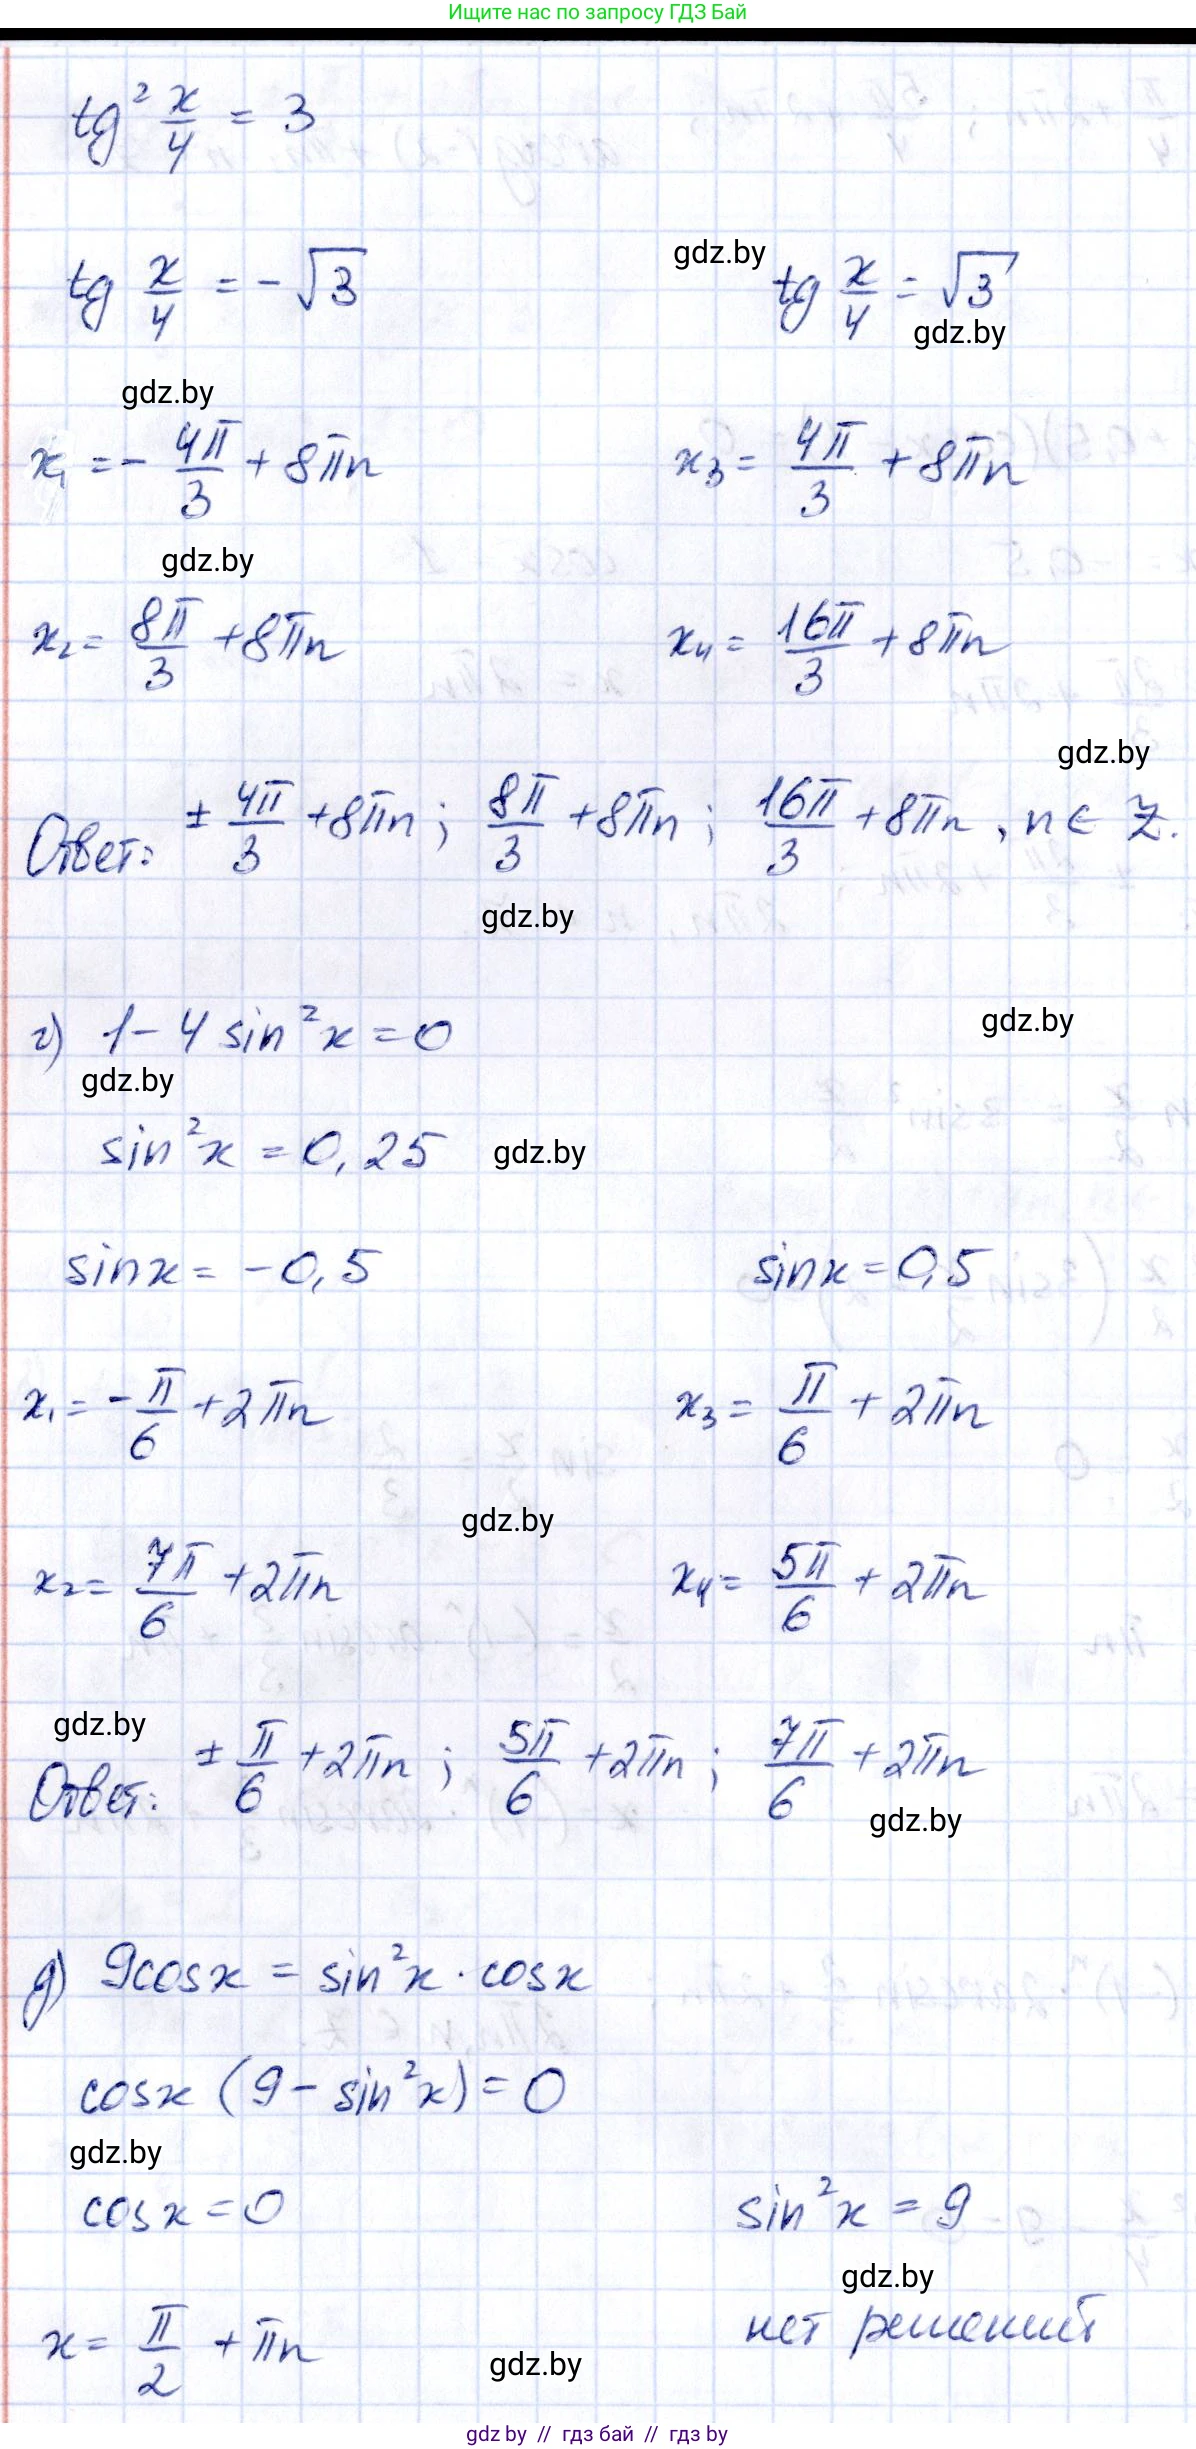 Ищите нас по запросу ГДЗ Бай
tg² x/4 = 3
tg x/4 = -√3 gdz.by tg x/4 = √3
gdz.by
gdz.by
x₁ = - 4π/3 + 8πn x₃ = 4π/3 + 8πn
gdz.by
x₂ = 8π/3 + 8πn x₄ = 16π/3 + 8πn
gdz.by
Ответ: ± 4π/3 + 8πn ; 8π/3 + 8πn ; 16π/3 + 8πn , n ∈ Z.
gdz.by
г) 1 - 4 sin²x = 0 gdz.by
gdz.by
sin²x = 0,25 gdz.by
sinx = -0,5 sinx = 0,5
x₁ = - π/6 + 2πn x₃ = π/6 + 2πn
gdz.by
x₂ = 7π/6 + 2πn x₄ = 5π/6 + 2πn
gdz.by
Ответ: ± π/6 + 2πn ; 5π/6 + 2πn ; 7π/6 + 2πn
gdz.by
д) 9cosx = sin²x · cosx
cosx (9 - sin²x) = 0
gdz.by
cosx = 0 sin²x = 9
gdz.by
x = π/2 + πn нет решений
gdz.by
gdz by // гдз бай // гдз by